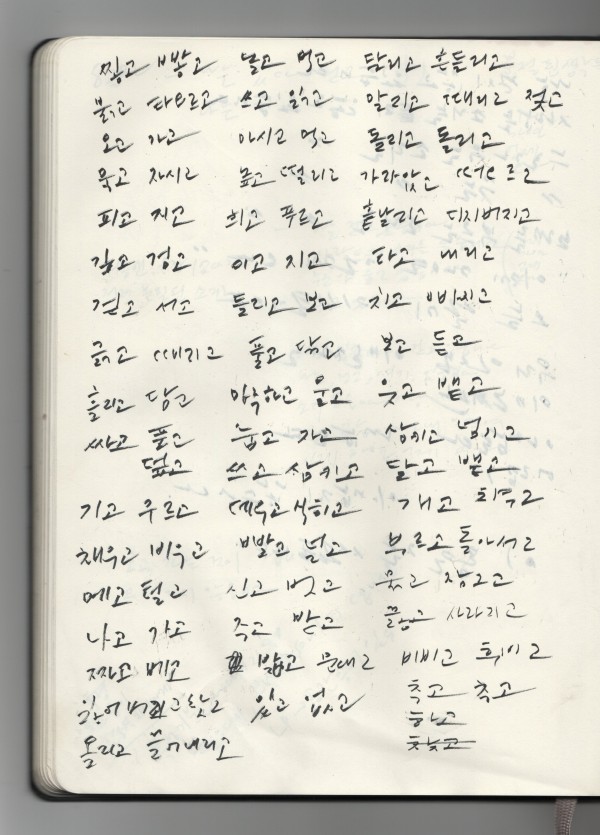 찧고 빻고 널고 먹고 달리고 흔들리고
붉고 타오르고 쓰고 읽고 말리고 때리고 젖고
오고 가고 마시고 먹고 돌리고 돌리고
묵고 자시고 떨리고 가라앉고 떠오르고
피고 지고 희고 푸르고 흩날리고 뒤집어지고
감고 검고 이고 지고 타고 내리고
걷고 서고 들리고 보고 치고 빠지고
긁고 때리고 풀고 닦고 보고 듣고
흘리고 담고 말하고 울고 웃고 뱉고
싸고 풀고 눕고 자고 삼키고 넘기고
덮고 쓰고 삼키고 달고 뱉고
기고 구르고 데우고 식히고 개고
채우고 비우고 빨고 널고 부르고 돌아서고
메고 털고 신고 벗고 잠그고
나고 가고 주고 받고 끓고 사라지고
짜고 베고 밟고 문대고 비비고 휘고
있고 없고 축고 축고
하고
올리고 끌어내리고